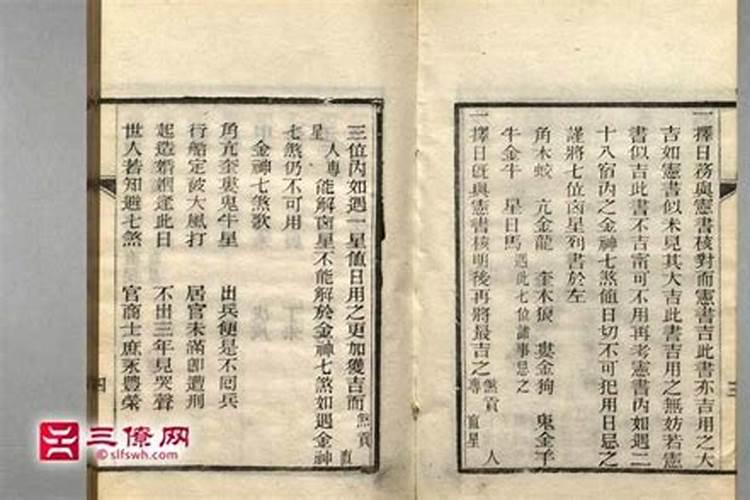 一擇日務與憲書核對而憲書吉此書亦吉用之大
吉如憲書似未見其大吉此書吉用之無妨若憲
書似吉此書不吉甯可不用再考憲書內如遇二
十八宿內之金神七煞値日切不可犯用日忌之
謹將七位凶星列書於左
角木蛟 亢金龍 奎木狼 婁金狗 鬼金羊
牛金牛 星日馬 遇此七位諸事忌之
一擇日旣與憲書核明後再將最吉之煞貢 人專 直星
三
三位內如遇一星値日用之更加獲吉而煞貢 直
星 人專 能解凶星不能解於金神七煞如遇金神
七煞仍不可用
金神七煞歌
角亢奎婁鬼牛星 出兵便是不囘兵
行船定被大風打 居官未滿卽遭刑
起造婚姻逢此日 不出三年見哭聲
世人若知避七煞 官商士庶永豐榮
四
三僚网
©slfswh.com